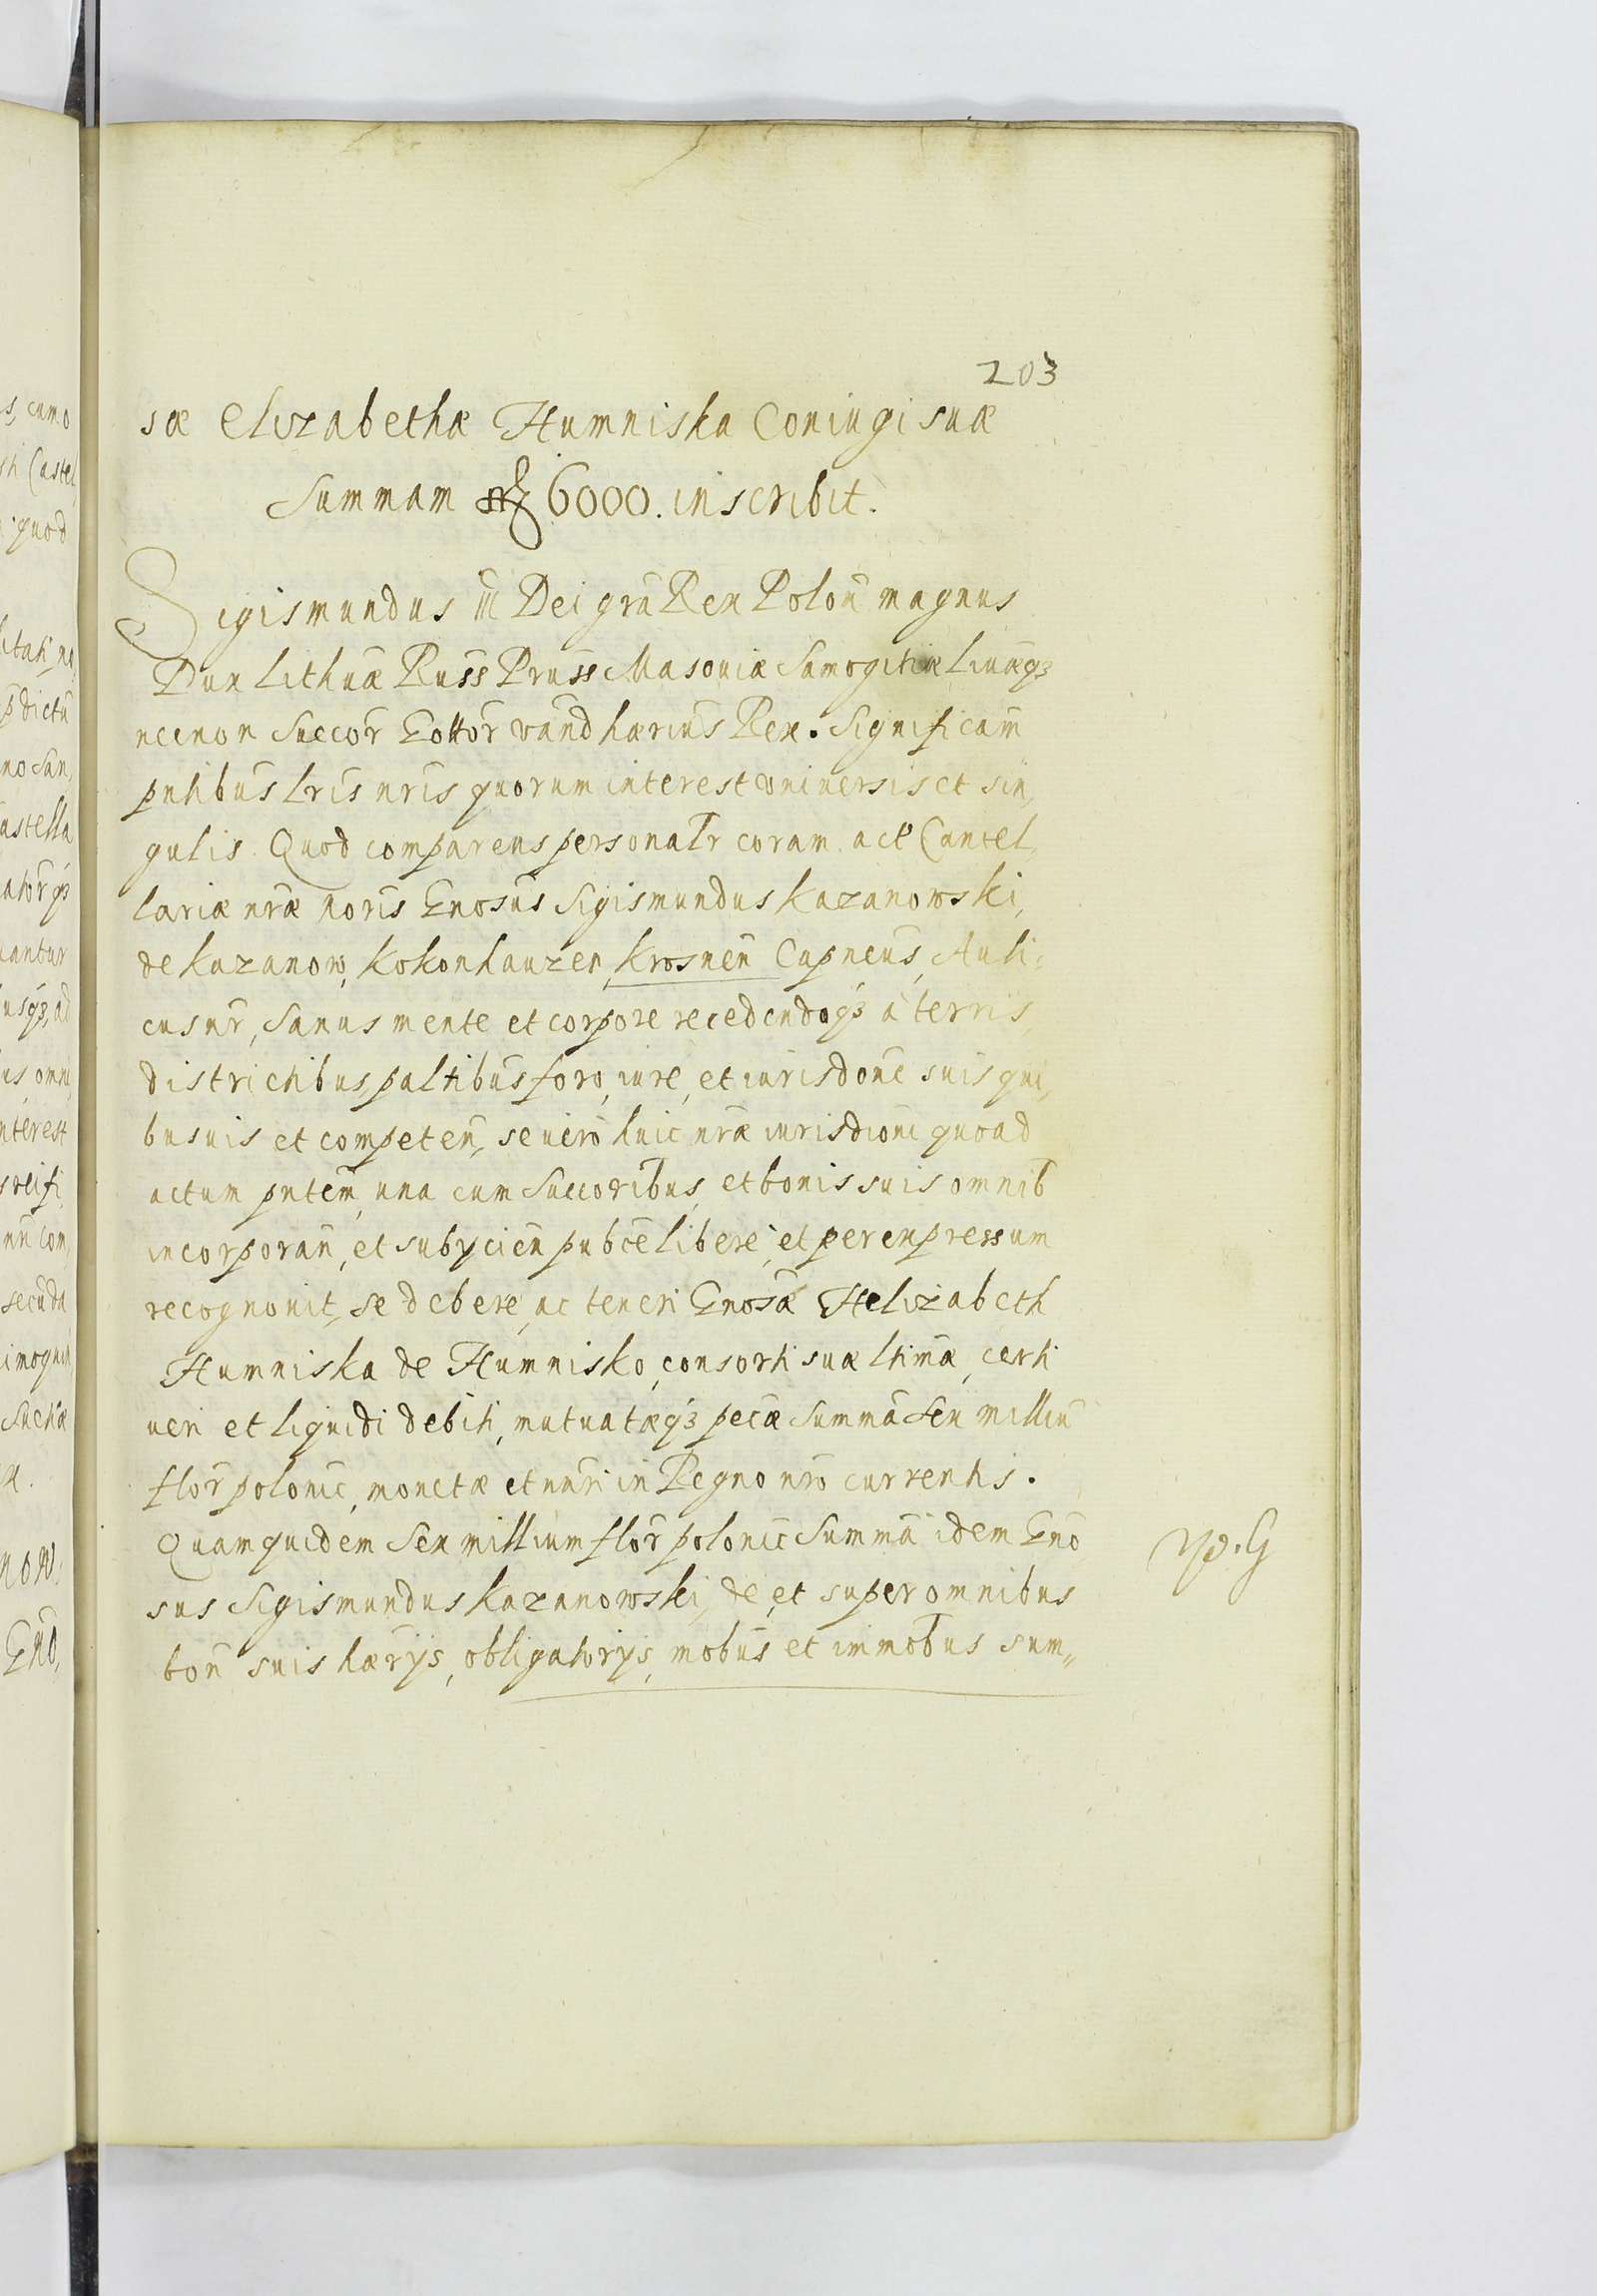 203
sæ Elizabethæ Humniska Coniugi suæ
Summam 6000. inscribit.
Sigismundus III Dei gra͞ Rex Polon͞ magnus
Dux Lithuæ͞ Russ͞ Pruss͞ Masouiæ Samogitiæ Liuæ͞qȝ
necnon Suecor͞ Gottor͞ vand͞ hærius͞ Rex. Significam͞
pntibus͞ Lris͞ nris͞ quorum interest vniuersis et sin,
gulis. Quod comparens personalr͞ coram act͞ Cancel,
lariæ nræ͞ noris͞ Gnosus͞ Sigismundus Kazanowski,
de Kazanow, Kokonhauzen, Krosnen͞ Capneus͞, Auli,
cus nr͞, sanus mente et corpore recedendoqȝ à terris
districtibus, paltibus͞ foro, iure, et iurisdone͞ suis qui,
busuis et competen͞, se uero huic nræ͞ iurisdioni͞ quoad
actum pntem͞, una cum Succoribus͞, et bonis suis omnib͞
incorporan͞, et subycien͞ pubce͞ libere, et per expressum
recognouit, se debere, ac teneri Gnosæ͞ Helizabeth
Humniska de Humnisko, consorti suæ ltimæ͞, certi
ueri et liquidi debiti, mutuatæqȝ pecæ͞ summa͞ sex milliu͞
flor͞ polonic͞, monetæ et nnri͞ in Regno nro͞ currentis.
Quamquidem sex millium flor͞ polonic͞ Summa͞ idem Gno͞
sus Sigismundus Kazanowski, de, et super omnibus
bon͞ suis hærys͞, obligatorys, mobus͞ et immobus͞ sum„
s, cum o
Castel
quod
litati no
pdictu͞
no San,
astella
atorqȝ
uantur
usqȝ, ad
us, omni
nterest
Con,
secuda
imoquin
now,
Gno͞,